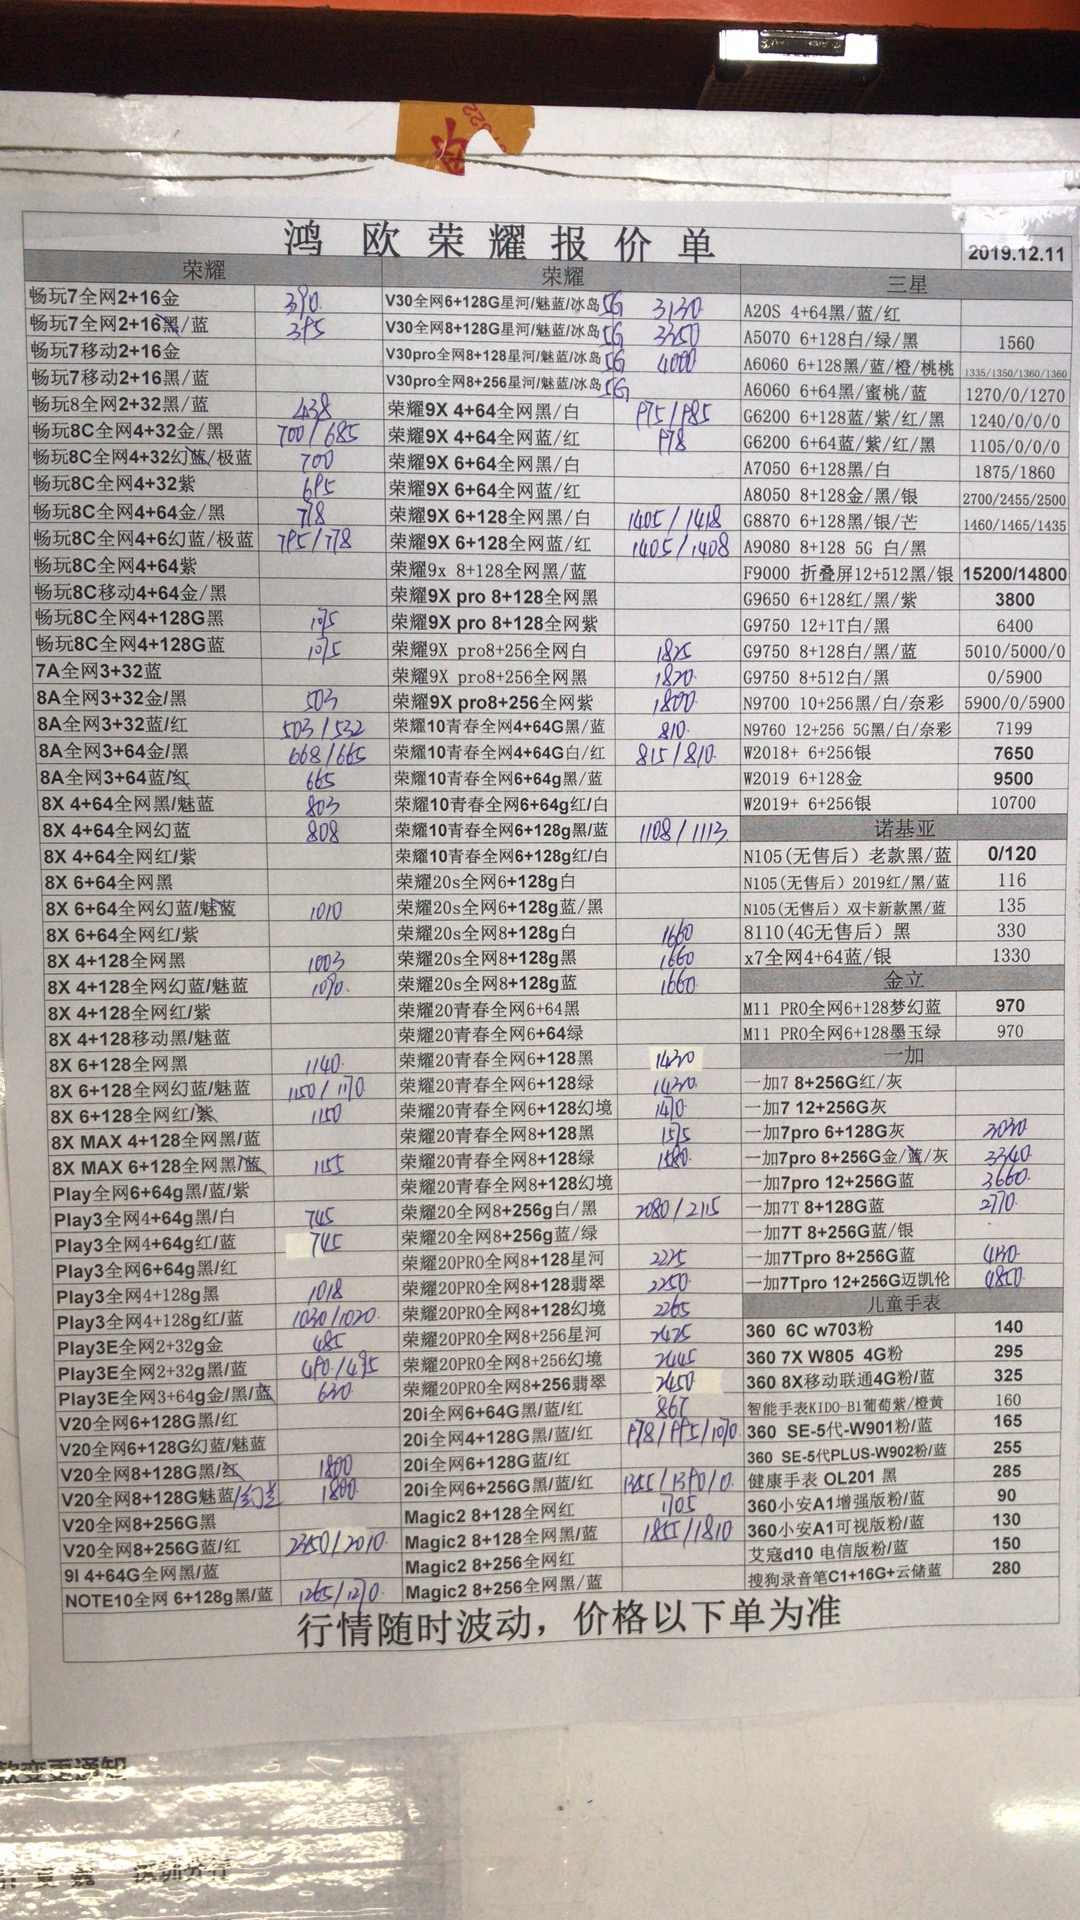 鸿 欧 荣 耀 报 价 单
2019.12.11
荣耀
畅玩7全网2+16金 390
畅玩7全网2+16黑/蓝 395
畅玩7移动2+16金
畅玩7移动2+16黑/蓝
畅玩8全网2+32黑/蓝 438
畅玩8C全网4+32金/黑 700/685
畅玩8C全网4+32幻蓝/极蓝 700
畅玩8C全网4+32紫 695
畅玩8C全网4+64金/黑 778
畅玩8C全网4+6幻蓝/极蓝 795/778
畅玩8C全网4+64紫
畅玩8C移动4+64金/黑
畅玩8C全网4+128G黑
畅玩8C全网4+128G蓝
7A全网3+32蓝
8A全网3+32金/黑 503
8A全网3+32蓝/红 503/532
8A全网3+64金/黑 668/665
8A全网3+64蓝/红 665
8X 4+64全网黑/魅蓝 803
8X 4+64全网幻蓝 808
8X 4+64全网红/紫
8X 6+64全网黑
8X 6+64全网幻蓝/魅蓝 1010
8X 6+64全网红/紫
8X 4+128全网黑 1003
8X 4+128全网幻蓝/魅蓝 1090
8X 4+128全网红/紫
8X 4+128移动黑/魅蓝
8X 6+128全网黑 1140
8X 6+128全网幻蓝/魅蓝 1150/1170
8X 6+128全网红/紫 1150
8X MAX 4+128全网黑/蓝
8X MAX 6+128全网黑/蓝 1155
Play全网6+64g黑/蓝/紫
Play3全网4+64g黑/白 745
Play3全网4+64g红/蓝 745
Play3全网6+64g黑/红
Play3全网4+128g黑 1018
Play3全网4+128g红/蓝 1030/1020
Play3E全网2+32g金 485
Play3E全网2+32g黑/蓝 490/495
Play3E全网3+64g金/黑/蓝 630
V20全网6+128G黑/红
V20全网6+128G幻蓝/魅蓝
V20全网8+128G黑/红 1800
V20全网8+128G魅蓝/幻蓝 1800
V20全网8+256G黑
V20全网8+256G蓝/红 2350/2010
9I 4+64G全网黑/蓝
NOTE10全网 6+128g黑/蓝 1265/1270
荣耀
V30全网6+128G星河/魅蓝/冰岛 5G 3130
V30全网8+128G星河/魅蓝/冰岛 5G 3350
V30pro全网8+128星河/魅蓝/冰岛 5G 4000
V30pro全网8+256星河/魅蓝/冰岛 5G
荣耀9X 4+64全网黑/白 975/985
荣耀9X 4+64全网蓝/红 978
荣耀9X 6+64全网黑/白
荣耀9X 6+64全网蓝/红
荣耀9X 6+128全网黑/白 1405/1418
荣耀9X 6+128全网蓝/红 1405/1408
荣耀9x 8+128全网黑/蓝
荣耀9X pro 8+128全网黑
荣耀9X pro 8+128全网紫
荣耀9X pro8+256全网白 1825
荣耀9X pro8+256全网黑 1820
荣耀9X pro8+256全网紫 1800
荣耀10青春全网4+64G黑/蓝 810
荣耀10青春全网4+64G白/红 815/810
荣耀10青春全网6+64g黑/蓝
荣耀10青春全网6+64g红/白
荣耀10青春全网6+128g黑/蓝 1108/1113
荣耀10青春全网6+128g红/白
荣耀20s全网6+128g白
荣耀20s全网6+128g蓝/黑
荣耀20s全网8+128g白 1660
荣耀20s全网8+128g黑 1660
荣耀20s全网8+128g蓝 1660
荣耀20青春全网6+64黑
荣耀20青春全网6+64绿
荣耀20青春全网6+128黑 1430
荣耀20青春全网6+128绿 1430
荣耀20青春全网6+128幻境 1470
荣耀20青春全网8+128黑 1575
荣耀20青春全网8+128绿 1580
荣耀20青春全网8+128幻境
荣耀20全网8+256g白/黑 2080/2115
荣耀20全网8+256g蓝/绿
荣耀20PRO全网8+128星河 2275
荣耀20PRO全网8+128翡翠 2250
荣耀20PRO全网8+128幻境 2265
荣耀20PRO全网8+256星河 2425
荣耀20PRO全网8+256幻境 2445
荣耀20PRO全网8+256翡翠 2450
20i全网6+64G黑/蓝/红 867
20i全网4+128G黑/蓝/红 978/995/1070
20i全网6+128G蓝/红
20i全网6+256G黑/蓝/红 1355/1390/0
Magic2 8+128全网红 1705
Magic2 8+128全网黑/蓝 1855/1810
Magic2 8+256全网红
Magic2 8+256全网黑/蓝
三星
A20S 4+64黑/蓝/红
A5070 6+128白/绿/黑 1560
A6060 6+128黑/蓝/橙/桃桃 1335/1350/1360/1360
A6060 6+64黑/蜜桃/蓝 1270/0/1270
G6200 6+128蓝/紫/红/黑 1240/0/0/0
G6200 6+64蓝/紫/红/黑 1105/0/0/0
A7050 6+128黑/白 1875/1860
A8050 8+128金/黑/银 2700/2455/2500
G8870 6+128黑/银/芒 1460/1465/1435
A9080 8+128 5G 白/黑
F9000 折叠屏12+512黑/银 15200/14800
G9650 6+128红/黑/紫 3800
G9750 12+1T白/黑 6400
G9750 8+128白/黑/蓝 5010/5000/0
G9750 8+512白/黑 0/5900
N9700 10+256黑/白/奈彩 5900/0/5900
N9760 12+256 5G黑/白/奈彩 7199
W2018+ 6+256银 7650
W2019 6+128金 9500
W2019+ 6+256银 10700
诺基亚
N105(无售后）老款黑/蓝 0/120
N105(无售后）2019红/黑/蓝 116
N105(无售后）双卡新款黑/蓝 135
8110(4G无售后）黑 330
x7全网4+64蓝/银 1330
金立
M11 PRO全网6+128梦幻蓝 970
M11 PRO全网6+128墨玉绿 970
一加
一加7 8+256G红/灰
一加7 12+256G灰
一加7pro 6+128G灰 3030
一加7pro 8+256G金/蓝/灰 3340
一加7pro 12+256G蓝 3660
一加7T 8+128G蓝 2770
一加7T 8+256G蓝/银
一加7Tpro 8+256G蓝 4130
一加7Tpro 12+256G迈凯伦 4850
儿童手表
360 6C w703粉 140
360 7X W805 4G粉 295
360 8X移动联通4G粉/蓝 325
智能手表KIDO-B1葡萄紫/橙黄 160
360 SE-5代-W901粉/蓝 165
360 SE-5代PLUS-W902粉/蓝 255
健康手表 OL201 黑 285
360小安A1增强版粉/蓝 90
360小安A1可视版粉/蓝 130
艾寇d10 电信版粉/蓝 150
搜狗录音笔C1+16G+云储蓝 280
行情随时波动，价格以下单为准
款变更通知